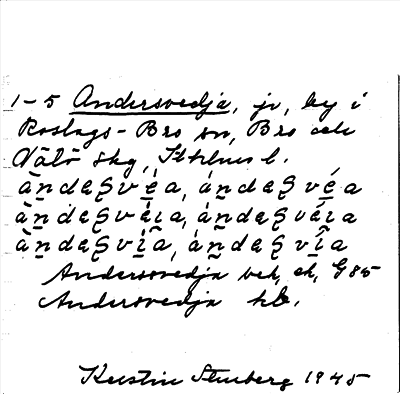 1-5 Andersvedja, jr, by i
Roslags-Bro sn, Bro och
Vätö skg, Sthlms l.
àndaʂvéa, ándaʂvéa
àndaʂvéıa, ándaʂvéıa
àndaʂvîa, ándaʂvîa
Andersvedja bek, ek, G85
Andersvedja hb.
Kerstin Stenberg 1945